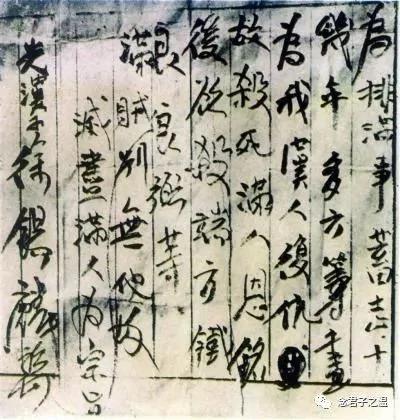 為排滿事蓄志十
幾年多方筹畫
為我漢人復仇
故殺死滿人恩銘
後欲殺端方鐵
良良弼等
滿賊別無他故
滅盡滿人為宗旨
光漢子徐錫麟
念君子之温